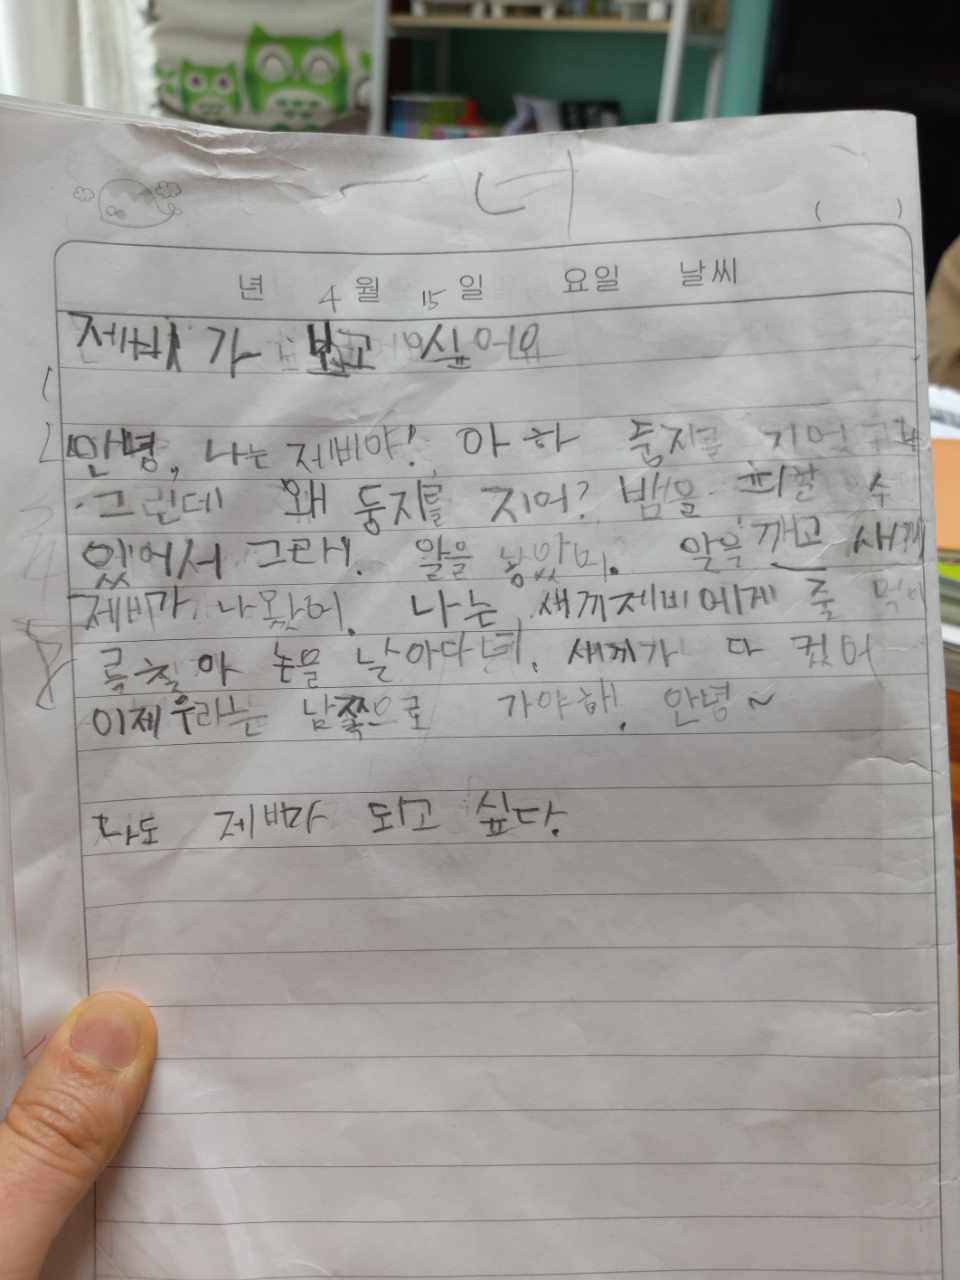 너
( )
년 4월 15일 요일 날씨
제비가 보고 싶어요
안녕, 나는 제비야! 아하 둥지를 지었구나
그런데 왜 둥지를 지어? 뱀을 피할 수
있어서 그래. 알을 낳았어. 알을 까고 새끼
제비가 나왔어. 나는 새끼제비에게 줄 먹이
를 찾아 논물 날아다녀. 새끼가 다 컸어
이제 우라는 남쪽으로 가야해. 안녕~
나도 제비가 되고 싶다.